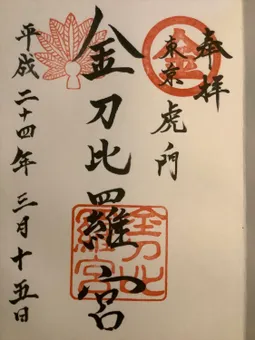 奉拝
東京虎ノ門
金
金刀比羅宮
金刀比羅宮
平成二十四年三月十五日